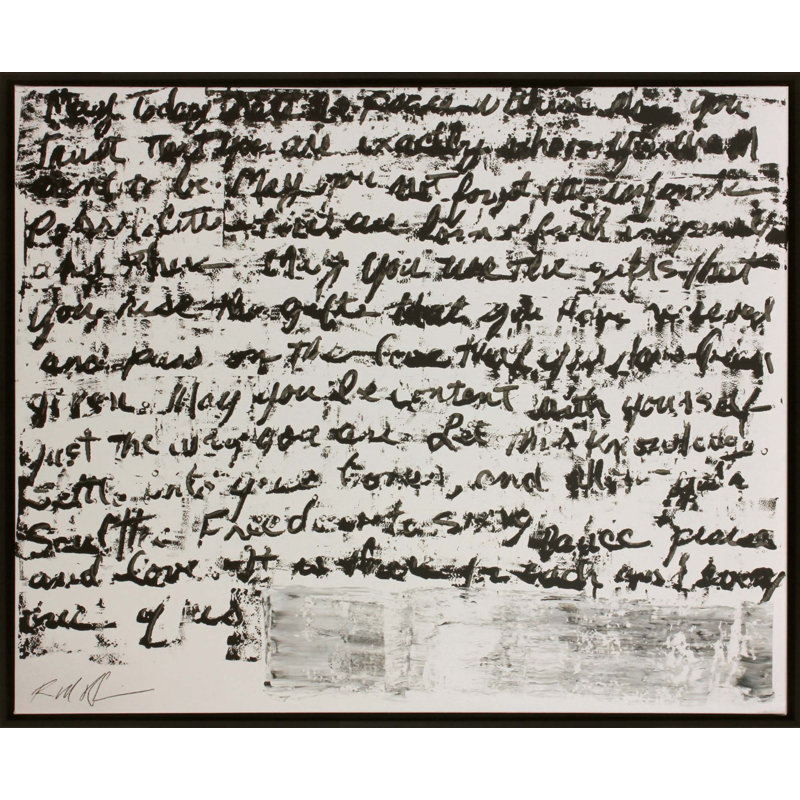 May Today there be peace within. May you
trust that you are exactly where you are
meant to be. May you not forget the infinite
possibilities that are born of faith in yourself
and others. May you use the gifts that
you use the gifts that you have received
and pass on the love that you have been
given. May you be content with yourself
just the way you are Let this knowledge
settle into your bones, and allow your
Soul the Freedom to sing dance praise
and love. It is there for each and every
one of us